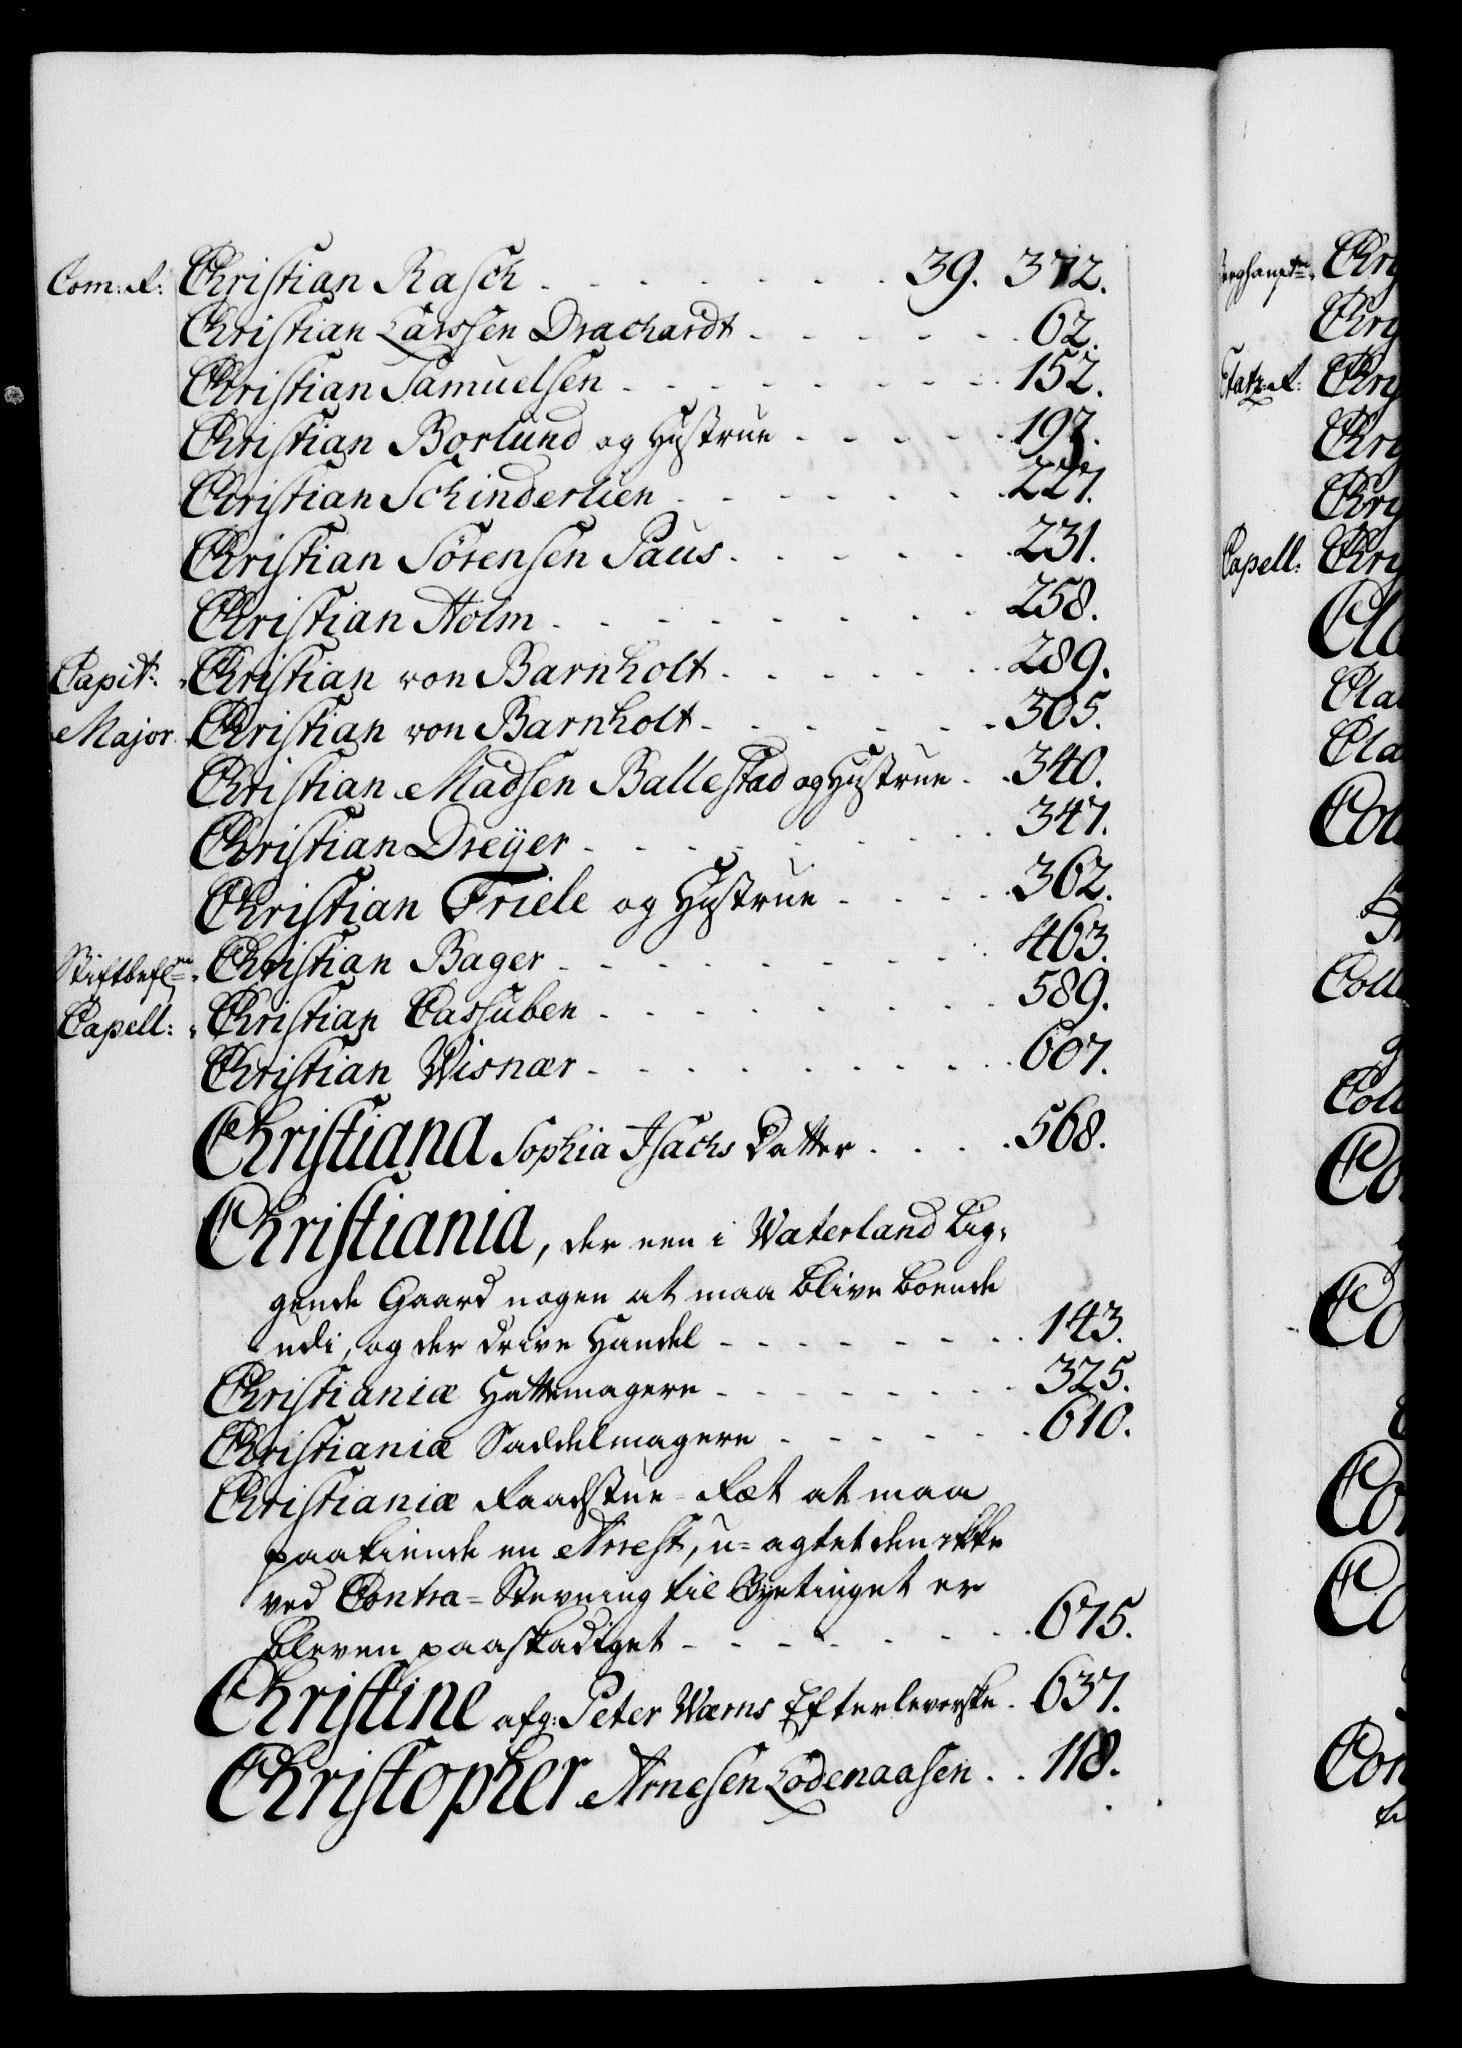 Com: R: Christian Rasch - - - - - - - 39. 372.
Christian Larssen Drachardt - - - - - 62.
Christian Samuelsen - - - - - - - 152.
Christian Borlund og Hustrue - - - - - 197.
Christian Schinderlien - - - - - - 227.
Christian Sørensen Paus - - - - - 231.
Christian Holm - - - - - - - - 258.
Capit: Christian von Barnholt - - - - - - 289.
Major Christian von Barnholt - - - - - - 305.
Christian Madsen Ballestad og Hustrue - 340.
Christian Dreÿer - - - - - - - - 347.
Christian Friele og Hustrue - - - - 362.
Stiftbefm Christian Bager - - - - - - - - 463.
Capell: Christian Cassuben - - - - - - - 589.
Christian Wisnær - - - - - - - - 607.
Christiana Sophia Isachs Datter - - - - 568.
Christiania, der een i Waterland Lig-
gende Gaard nogen at maa blive boende
udi, og der drive Handel - - - - - - - 143.
Christiania Hattemagere - - - - - - - 325.
Christianiæ Sadelmagere - - - - - - 610.
Christianiæ Raadstue-Ræt at maa
paakiende en Arrest, u-agtet den ikke
ved Contra-Stevning til Byetinget er
bleven paaskadiget - - - - - - - 675.
Christine afg: Peter Wærns Efterleverske - 637.
Christopher Arnesen Lødenaasen - - 118.
Berghauptm. Chry
Chry
Etatz-R: Chry
Chry
Chry
Capell: Chry
Cla
Cla
Cla
Coll
Coll
Coll
Co
Co
Con
Co
Con